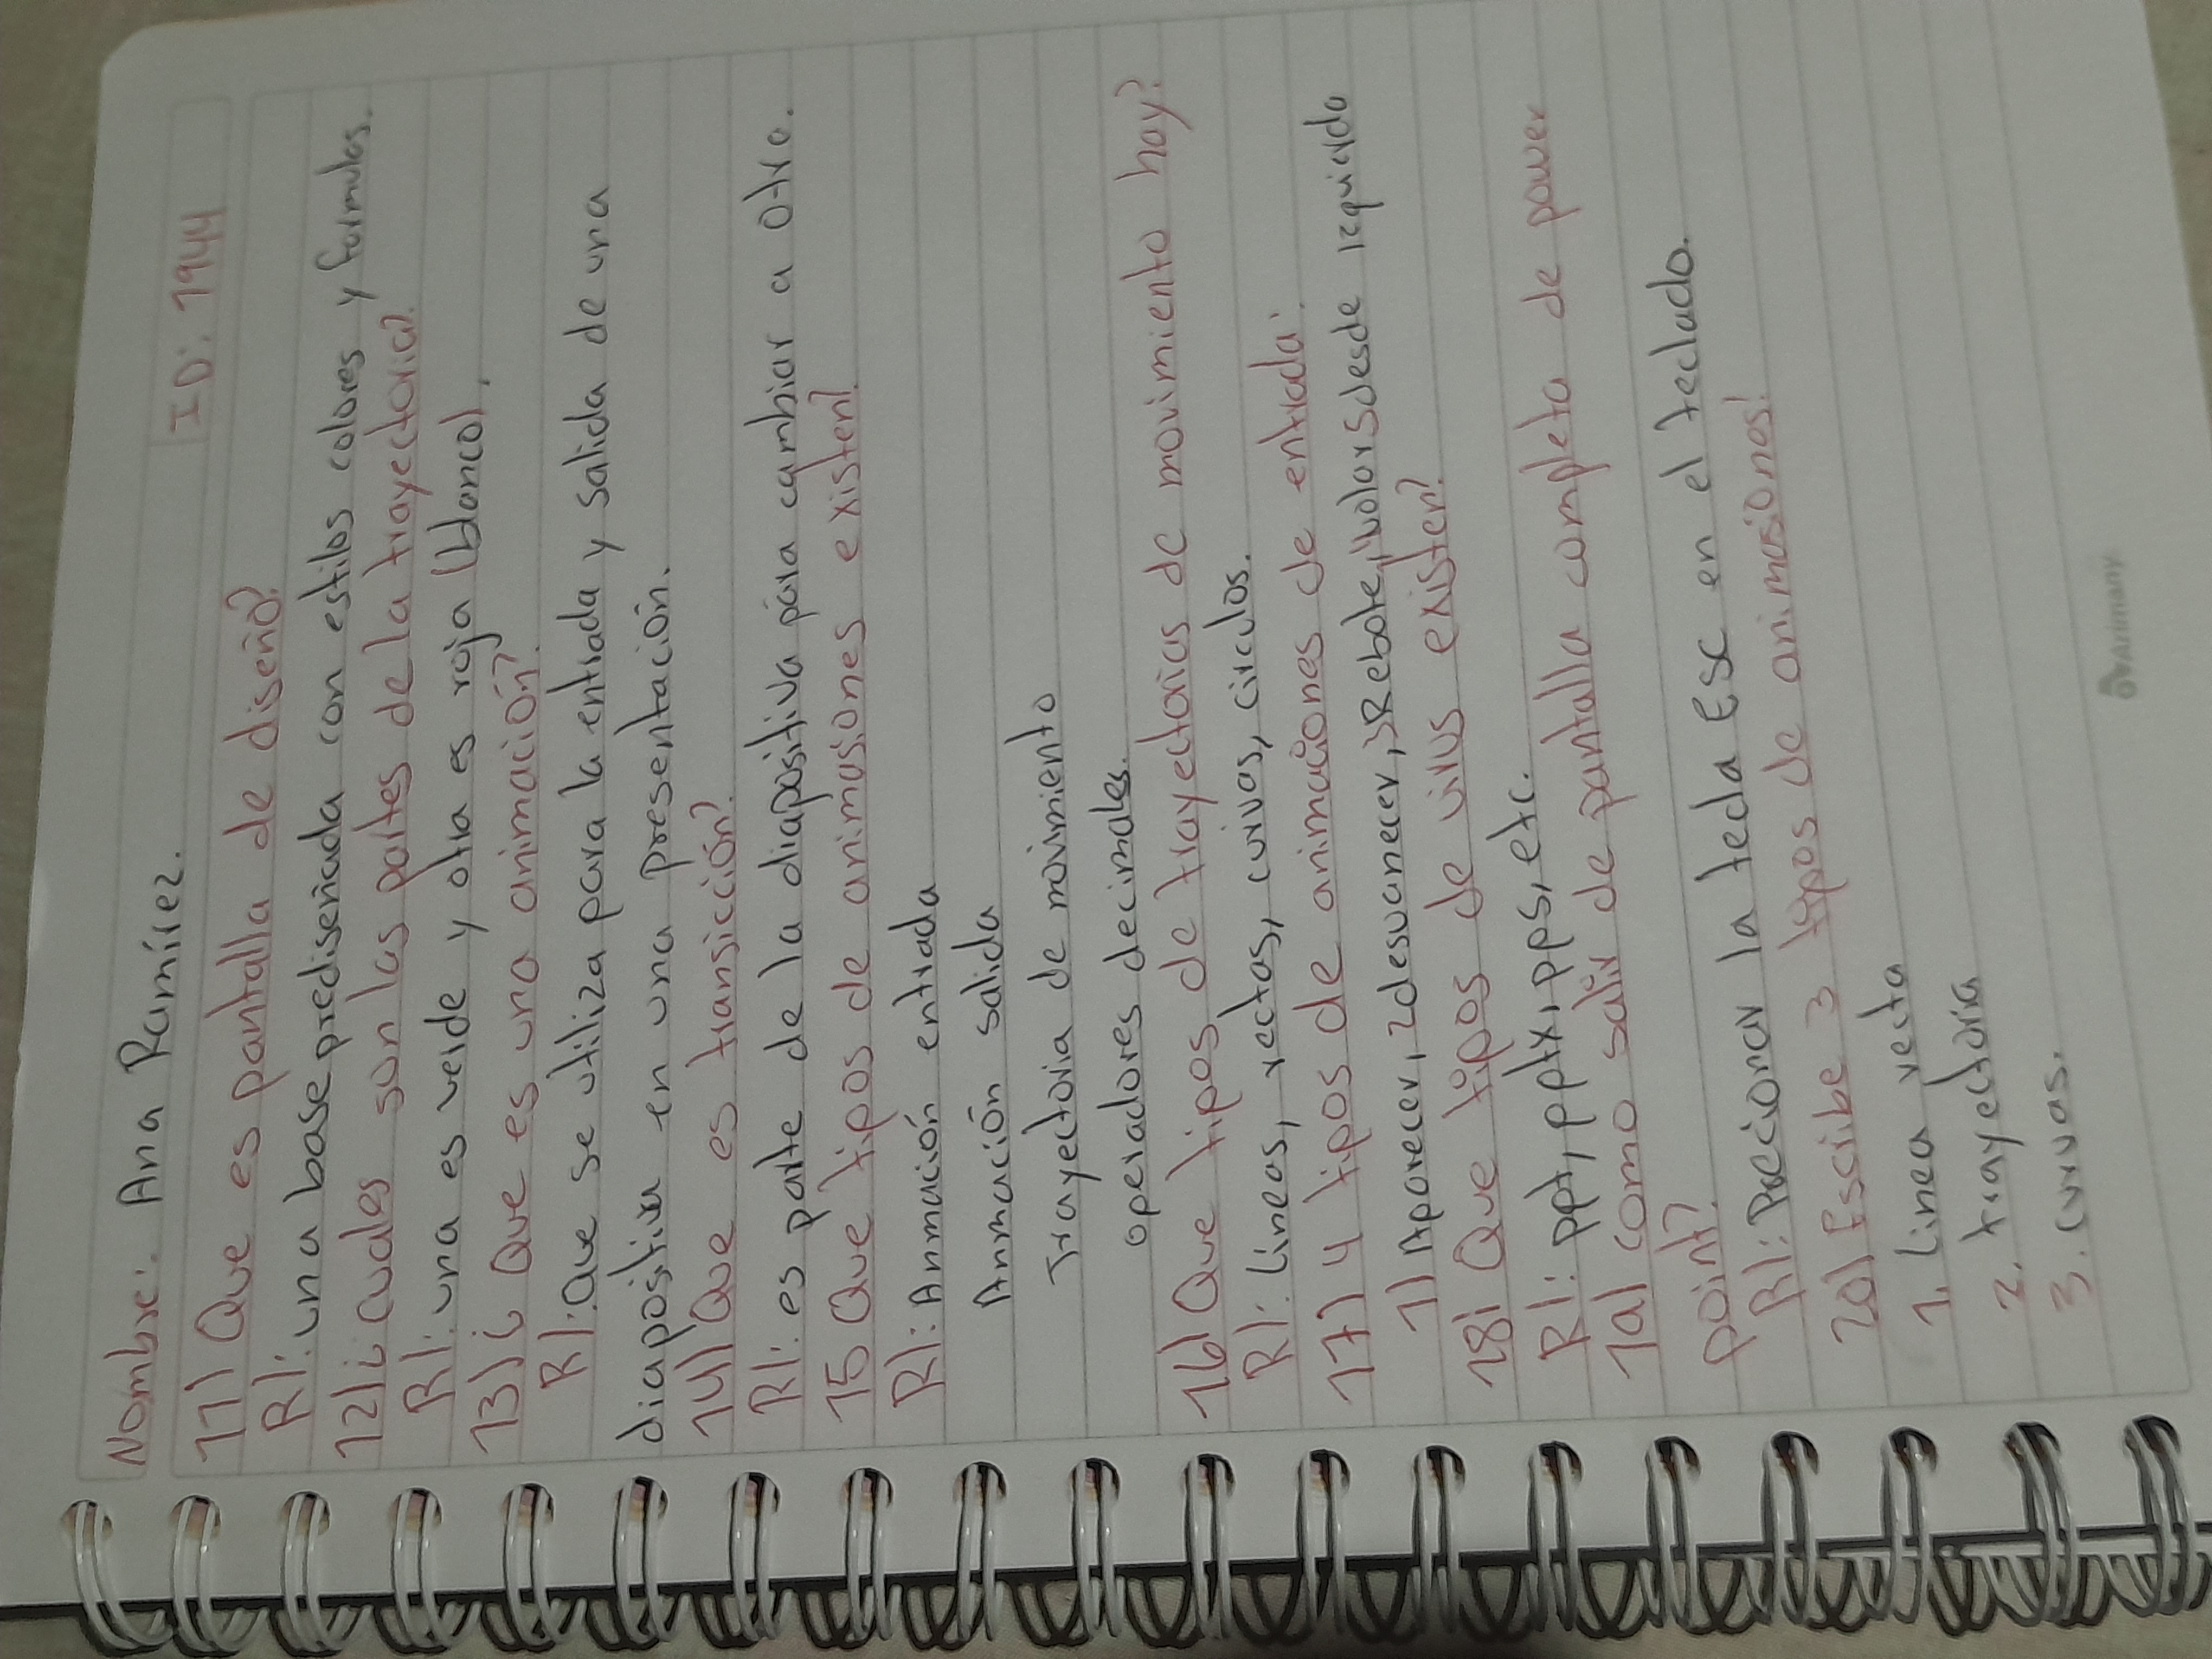 Nombre: Ana Ramírez.
ID: 7944
11) Que es pantalla de diseño?
R/: una base prediseñada con estilos colores y formulas.
12) ¿cuales son las partes de la trayectoria?
R/: una es verde y otra es roja (blanco).
13) ¿ Que es una animación?
R/: Que se utiliza para la entrada y salida de una
diapositiva en una presentación.
14) Que es transición?
R/: es parte de la diapositiva para cambiar a otra.
15 Que tipos de animasiones existen?
R/: Anmación entrada
Anmación salida
Trayectoria de movimiento
operadores decimales.
16) Que tipos de trayectorias de movimiento hay?
R/: lineas, rectas, curvas, circulos.
17) 4 tipos de animaciones de entrada:
1) Aparecer, 2desvanecer, 3Rebote, 4volar desde izquierda
18¡ Que tipos de virus existen?
R/: ppt, pptx, pps, etc.
19) como salir de pantalla completa de power
point?
R/: Precionar la tecla Esc en el teclado.
20) Escribe 3 tipos de animasiones!
1. linea recta
2. trayectoria
3. curvas.
Arimany